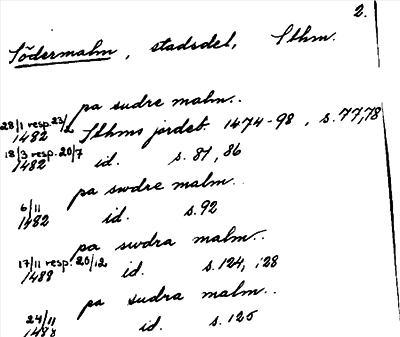 2.
Södermalm, stadsdel, Sthm.
pa sudre malm..
28/1 resp. 23/2
1482 Sthms jordeb. 1474-98, s. 77, 78
18/3 resp. 20/7
1482 id. s. 81, 86
pa swdre malm..
6/11
1482 id. s. 92
pa swdra malm..
17/11 resp. 20/12
1488 id. s. 124, 128
pa sudra malm..
24/11
1488 id. s. 125